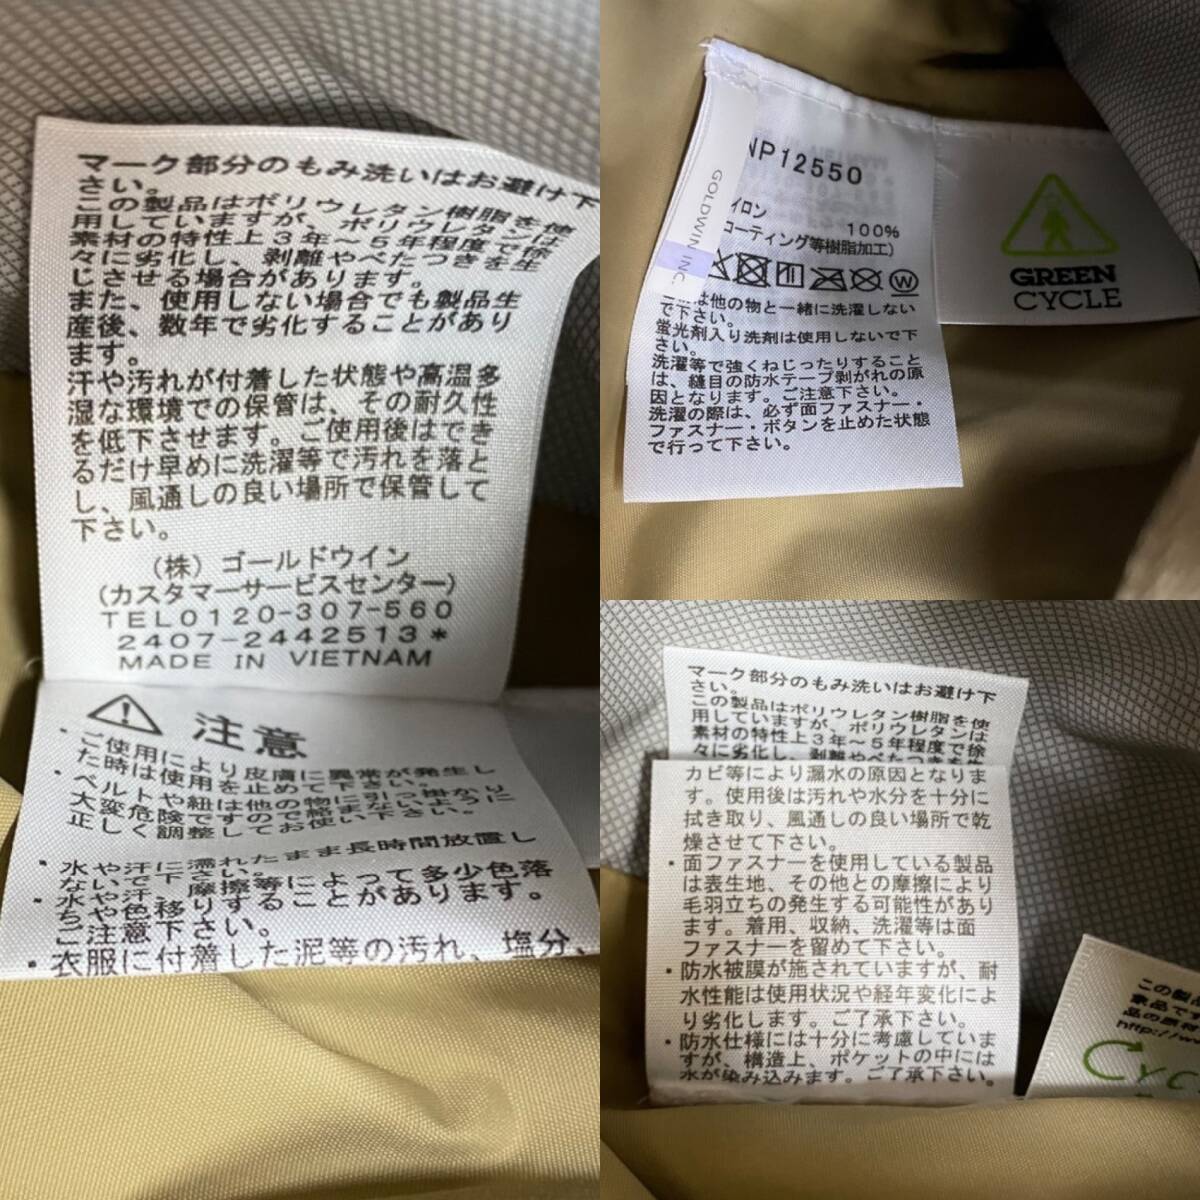 マーク部分のもみ洗いはお避け下
さい。
この製品はポリウレタン樹脂を使
用していますが、ポリウレタンは
素材の特性上3年～5年程度で徐
々に劣化し、剥離やべたつきを生
じさせる場合があります。
また、使用しない場合でも製品生
産後、数年で劣化することがあり
ます。
汗や汚れが付着した状態や高温多
湿な環境での保管は、その耐久性
を低下させます。ご使用後はでき
るだけ早めに洗濯等で汚れを落と
し、風通しの良い場所で保管して
下さい。
(株)ゴールドウイン
(カスタマーサービスセンター)
TEL0120-307-560
2407-2442513*
MADE IN VIETNAM
注意
・ご使用により皮膚に異常が発生し
た時は使用を止めて下さい。
・ベルトや紐は他の物に引っ掛かり
大変危険ですので絡まないように
正しく調整してお使い下さい。
・水や汗に濡れたまま長時間放置し
ないで下さい。
水や汗、摩擦等によって多少色落
ちや色移りすることがあります。
ご注意下さい。
・衣服に付着した泥等の汚れ、塩分、
NP12550
GOLDWIN INC.
イロン
100%
コーティング等樹脂加工)
W
は他の物と一緒に洗濯しない
で下さい。
蛍光剤入り洗剤は使用しないで下
さい。
洗濯等で強くねじったりすること
は、縫目の防水テープ剥がれの原
因となります。ご注意下さい。
洗濯の際は、必ず面ファスナー・
ファスナー・ボタンを止めた状態
で行って下さい。
GREEN
CYCLE
マーク部分のもみ洗いはお避け下
さい。
この製品はポリウレタン樹脂を使
用していますが、ポリウレタンは
素材の特性上3年～5年程度で徐
々に劣化し、剥離やべたつきを生
カビ等により漏水の原因となりま
す。使用後は汚れや水分を十分に
拭き取り、風通しの良い場所で乾
燥させて下さい。
・面ファスナーを使用している製品
は表生地、その他との摩擦により
毛羽立ちの発生する可能性があり
ます。着用、収納、洗濯等は面
ファスナーを留めて下さい。
・防水被膜が施されていますが、耐
水性能は使用状況や経年変化によ
り劣化します。ご了承下さい。
・防水仕様には十分に考慮していま
すが、構造上、ポケットの中には
水が染み込みます。ご了承下さい。
この製
素品です
品の原料
http://ww
CYC